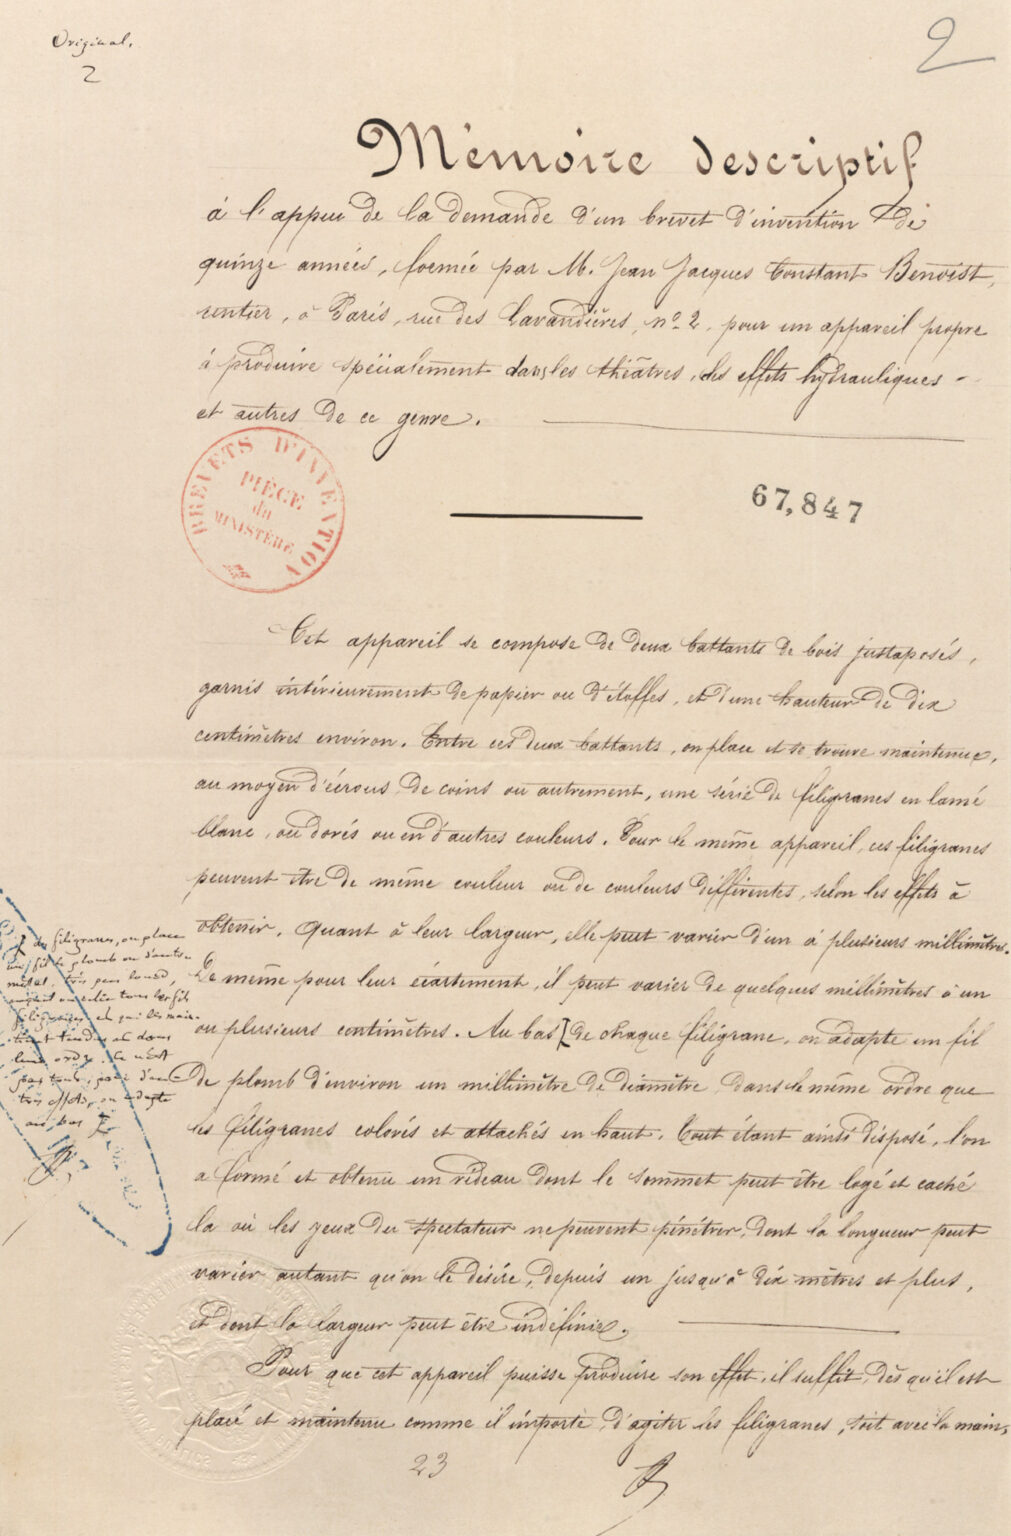 Original.
2
2
Mémoire descriptif
à l'appui de la demande d'un brevet d'invention de
quinze années, formée par M. Jean Jacques Constant Benoist,
rentier, à Paris, rue des Lavandières, nº 2, pour un appareil propre
à produire spécialement dans les théâtres, des effets hydrauliques
et autres de ce genre.
BREVETS D'INVENTION
PIÈCE
du
MINISTÈRE
67,847
Cet appareil se compose de deux battants de bois juxtaposés,
garnis intérieurement de papier ou d'étoffes, et d'une hauteur de dix
centimètres environ. Entre ces deux battants, on place et se trouve maintenue,
au moyen d'écrous, de coins ou autrement, une série de filigranes en lamé
blanc, ou dorés ou en d'autres couleurs. Pour le même appareil, ces filigranes
peuvent être de même couleur ou de couleurs différentes, selon les effets à
obtenir. Quant à leur largeur, elle peut varier d'un à plusieurs millimètres.
De même pour leur écartement, il peut varier de quelques millimètres à un
ou plusieurs centimètres. Au bas [de chaque filigrane, on adapte un fil
de plomb d'environ un millimètre de diamètre, dans le même ordre que
les filigranes colorés et attachés en haut. Tout étant ainsi disposé, l'on
a formé et obtenu un rideau dont le sommet peut être logé et caché
là où les yeux du spectateur ne peuvent pénétrer, dont la longueur peut
varier autant qu'on le désire, depuis un jusqu'à dix mètres et plus,
et dont la largeur peut être indéfinie.
Pour que cet appareil puisse produire son effet, il suffit, dès qu'il est
placé et maintenu comme il importe, d'agiter les filigranes, soit avec la main,
des filigranes, on place
un fil de plomb ou d'autre
métal, très peu lourd,
tous les fils
filigranes et qui les main-
tient tendus et dans
leur ordre. Ce n'est
pas tout, pour d'au-
tres effets, on adapte
au bas
23